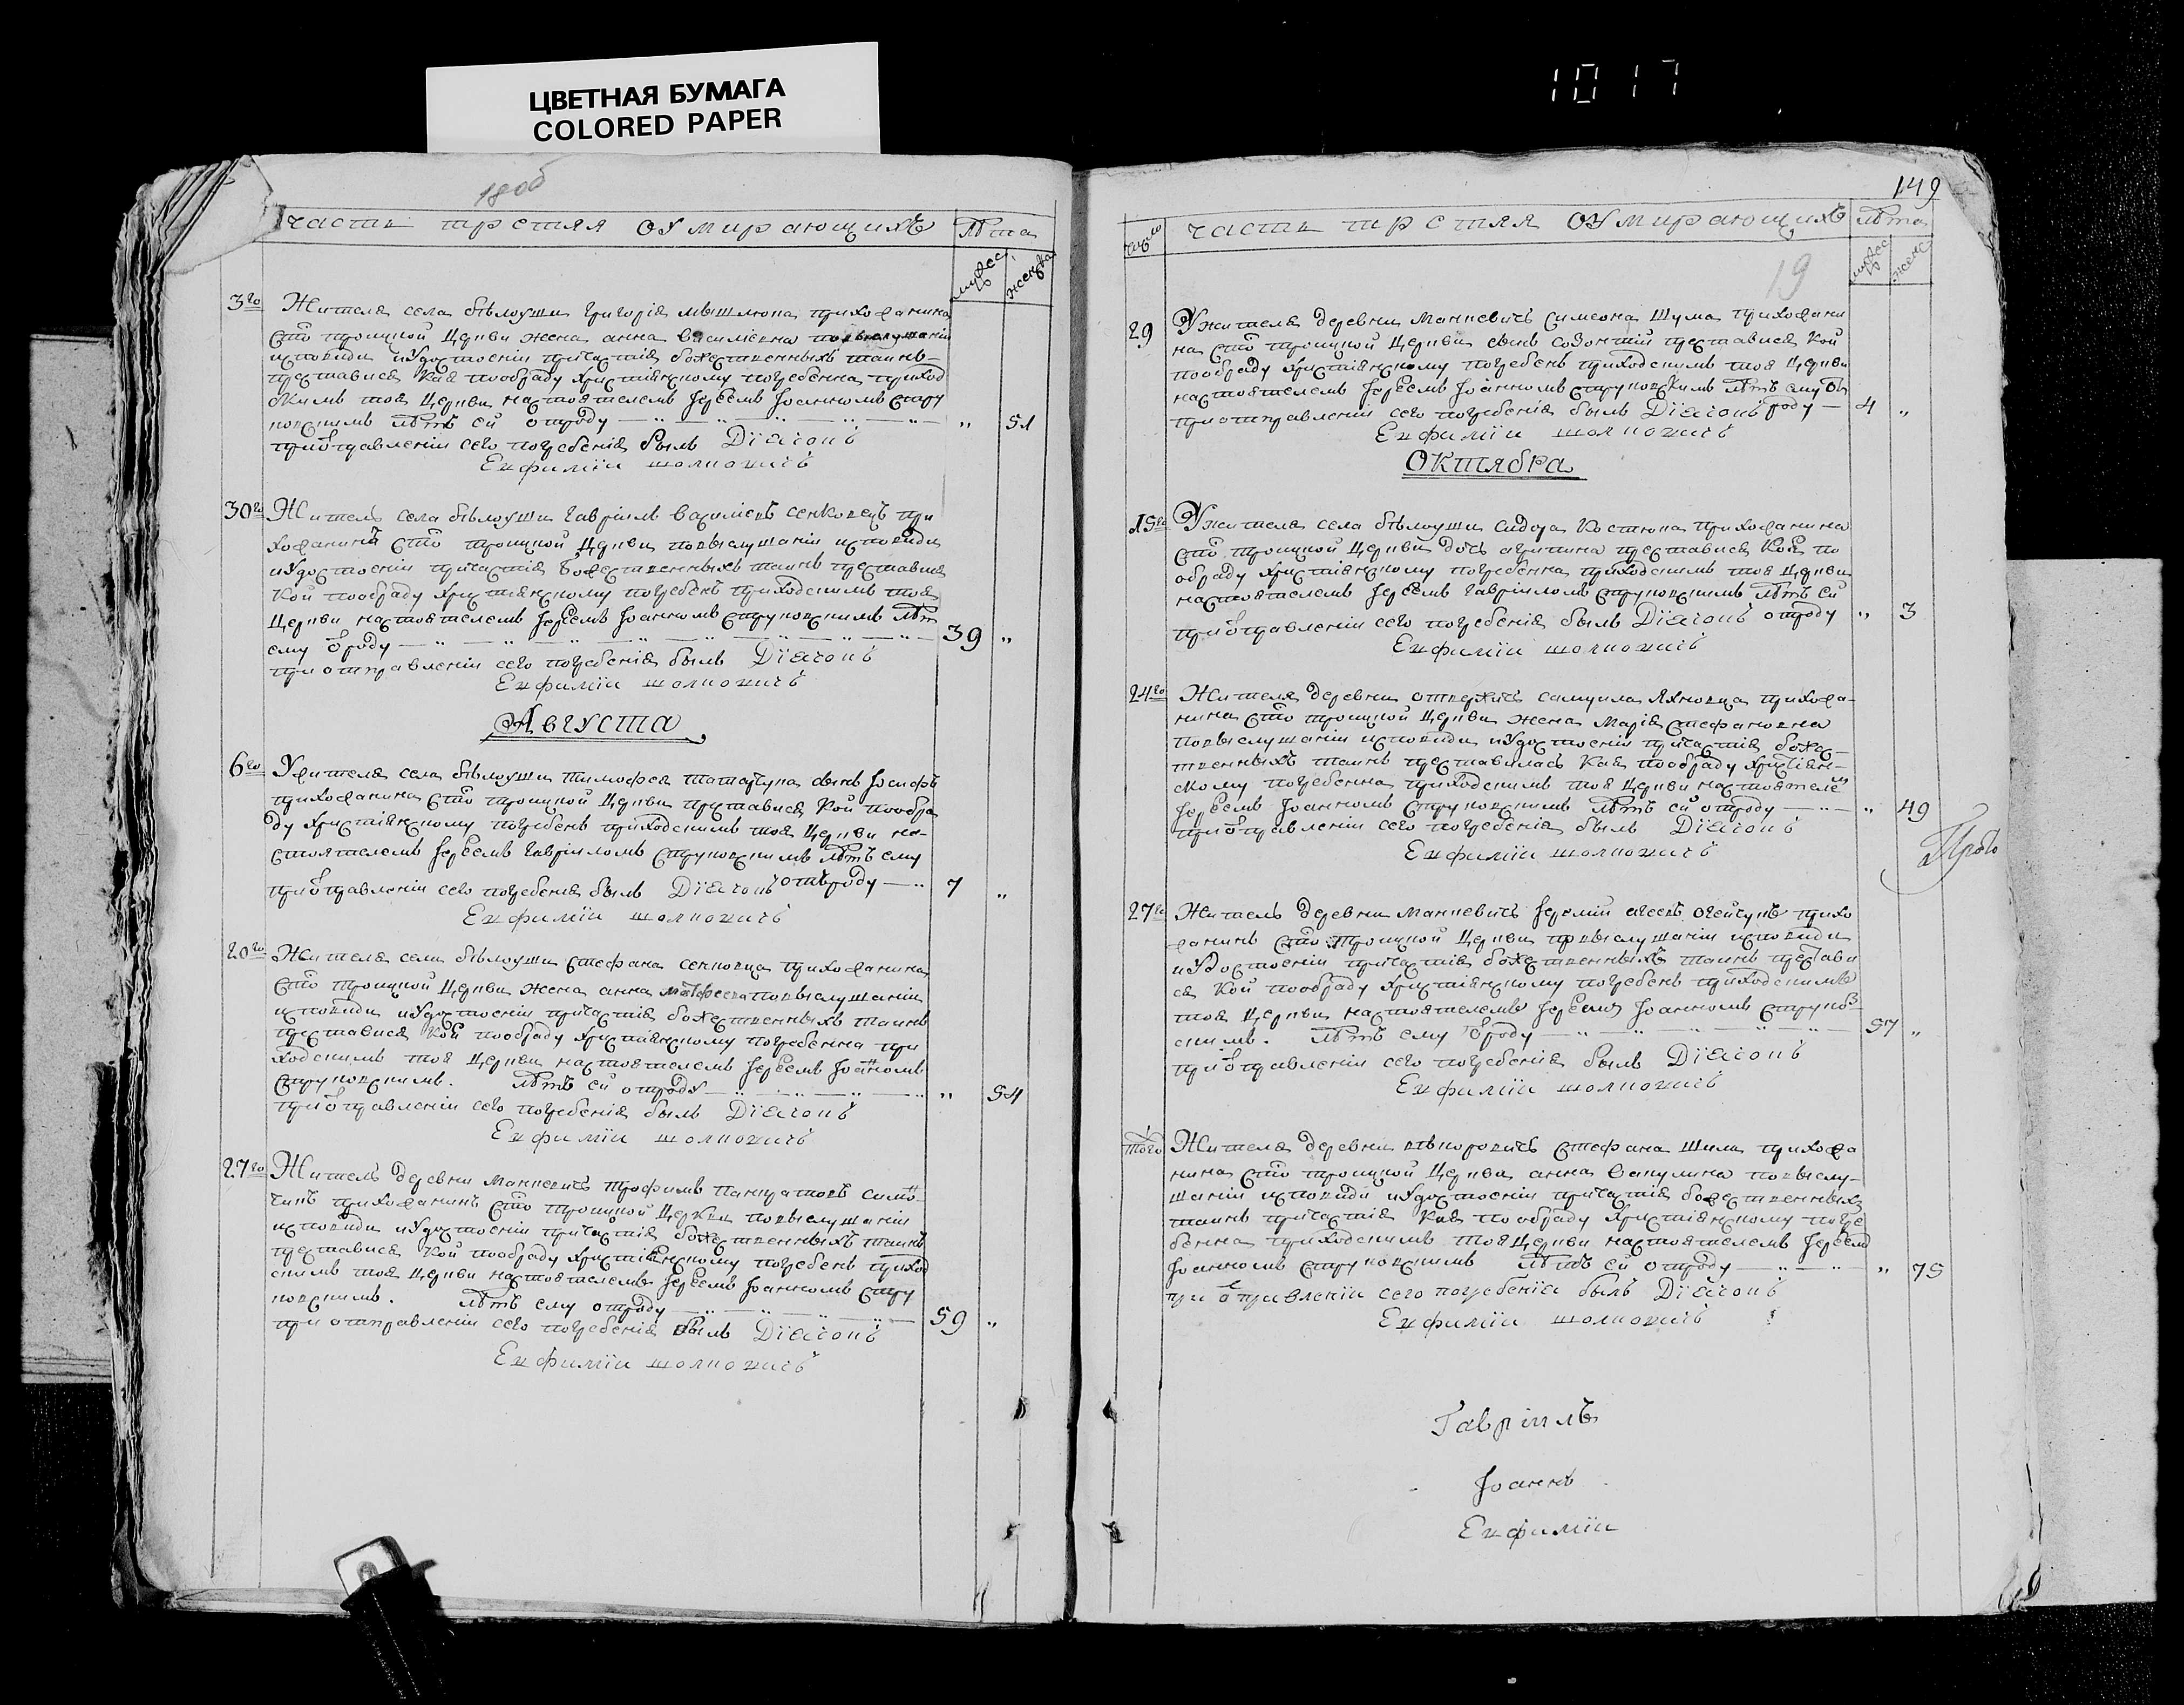 ЦВЕТНАЯ БУМАГА
COLORED PAPER
1017
1806
часть третяя оумирающихъ лѣта
мужес женска
3го Жителя села бѣлоуши григорія приходанина
Сто троицкой Церкви жена анна василіевна повыслушаніи
исповѣди иУдостоеніи причастія божественныхъ таинъ
преставися Кая пообряду христіянскому погребенна приход
скимъ тоя Церкви настоятелемъ Іереемъ Іоанномъ струт
ковскимъ лѣтъ ей отроду „ 51
приотправленіи сего погребенія былъ Діаконъ
Евфимій
30го Житель села бѣлоуши гавріилъ сенковецъ при
ходанинъ Сто троицкой Церкви повыслушаніи исповѣди
иУдостоеніи причастія Божественныхъ таинъ преставися
Кой пообряду христіянскому погребенъ приходскимъ тоя
Церкви настоятелемъ Іереемъ Іоанномъ лѣт
ему отроду 39 „
приотправленіи сего погребенія былъ Діаконъ
Евфимій
Августа
6го Ужителя села бѣлоуши тимофея сынъ Іосифъ
приходанина Сто троицкой Церкви преставися Кой пообря
ду христіянскому погребенъ приходскимъ тоя Церкви на-
стоятелемъ Іереемъ гавріиломъ лѣтъ ему
приотправленіи сего погребенія былъ Діаконъ отроду 7 „
Евфимій
20го Жителя села бѣлоуши стефана сенковца приходанина
Сто троицкой Церкви жена анна матфеева повыслушаніи
исповѣди иУдостоеніи причастія божественныхъ таинъ
преставися Кая пообряду христіянскому погребенна при
ходскимъ тоя Церкви настоятелемъ Іереемъ Іоанномъ
лѣтъ ей отроду „ 54
приотправленіи сего погребенія былъ Діаконъ
Евфимій
27го Житель деревни Манкевичъ трофимъ Панкратовъ
приходанинъ Сто троицкой Церкви повыслушаніи
исповѣди иУдостоеніи причастія божественныхъ таинъ
преставися Кой пообряду христіянскому погребенъ приход
скимъ тоя Церкви настоятелемъ Іереемъ Іоанномъ
лѣтъ ему отроду 59 „
при отправленіи сего погребенія былъ Діаконъ
Евфимій
149
число часть третяя оумирающихъ лѣта
мужес женс
19
29 Ужителя деревни Манкевичъ симеона Шума приходани
на Сто троицкой Церкви сынъ созонтій преставися Кой
пообряду христіянскому погребенъ приходскимъ тоя Церкви
настоятелемъ Іереемъ Іоанномъ лѣтъ ему от
приотправленіи сего погребенія былъ Діаконъ роду 4 „
Евфимій
Октября
15го Ужителя села бѣлоуши сидора Костюка приходанина
Сто троицкой Церкви дочь агрипина преставися Кая по
обряду христіянскому погребенна приходскимъ тоя Церкви
настоятелемъ Іереемъ гавріиломъ лѣтъ ей
приотправленіи сего погребенія былъ Діаконъ отроду „ 3
Евфимій
24го Жителя деревни отвержичъ самуила Яхновца прихода-
нина Сто троицкой Церкви жена Марія стефановна
повыслушаніи исповѣди иУдостоеніи причастія божес-
твенныхъ таинъ преставилась Кая пообряду христіян-
скому погребенна приходскимъ тоя Церкви настоятеле
Іереемъ Іоанномъ лѣтъ ей отроду „ 49
приотправленіи сего погребенія былъ Діаконъ
Евфимій
27го Житель деревни Манкевичъ Іеремій прихо
данинъ Сто троицкой Церкви повыслушаніи исповѣди
иУдостоеніи причастія божественныхъ таинъ престави
ся Кой пообряду христіянскому погребенъ приходскимъ
тоя Церкви настоятелемъ Іереемъ Іоанномъ
лѣтъ ему отроду 57 „
приотправленіи сего погребенія былъ Діаконъ
Евфимій
того Жителя деревни стефана Шила прихода
нина Сто троицкой Церкви анна повыслу-
шаніи исповѣди иУдостоеніи причастія божественныхъ
таинъ причастія Кая пообряду христіянскому погре
бенна приходскимъ тоя Церкви настоятелемъ Іереем
Іоанномъ лѣтъ ей отроду „ 75
при отправленіи сего погребенія былъ Діаконъ
Евфимій
Гавріилъ
Іоаннъ
Евфимій